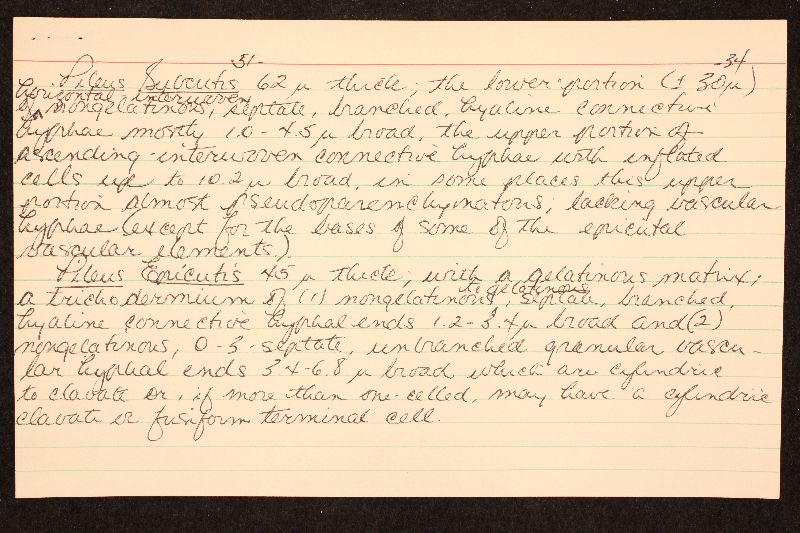 -51-
-34
Pileus Subcutis 62 µ thick; the lower portion (± 30µ)
horizontal interwoven
of nongelatinous, septate, branched, hyaline connective
hyphae mostly 1.0-4.5 µ broad, the upper portion of
ascending-interwoven connective hyphae with inflated
cells up to 10.2 µ broad, in some places this upper
portion almost pseudoparenchymatous; lacking vascular
hyphae (except for the bases of some of the epicutal
vascular elements.)
Pileus Epicutis 45 µ thick; with a gelatinous matrix;
to gelatinous
a trichodermium of (1) nongelatinous, septate, branched,
hyaline connective hyphal ends 1.2-3.4 µ broad and (2)
nongelatinous, 0-3-septate, unbranched granular vascu-
lar hyphal ends 3.4-6.8 µ broad which are cylindric
to clavate or, if more than one-celled, may have a cylindric
clavate or fusiform terminal cell.